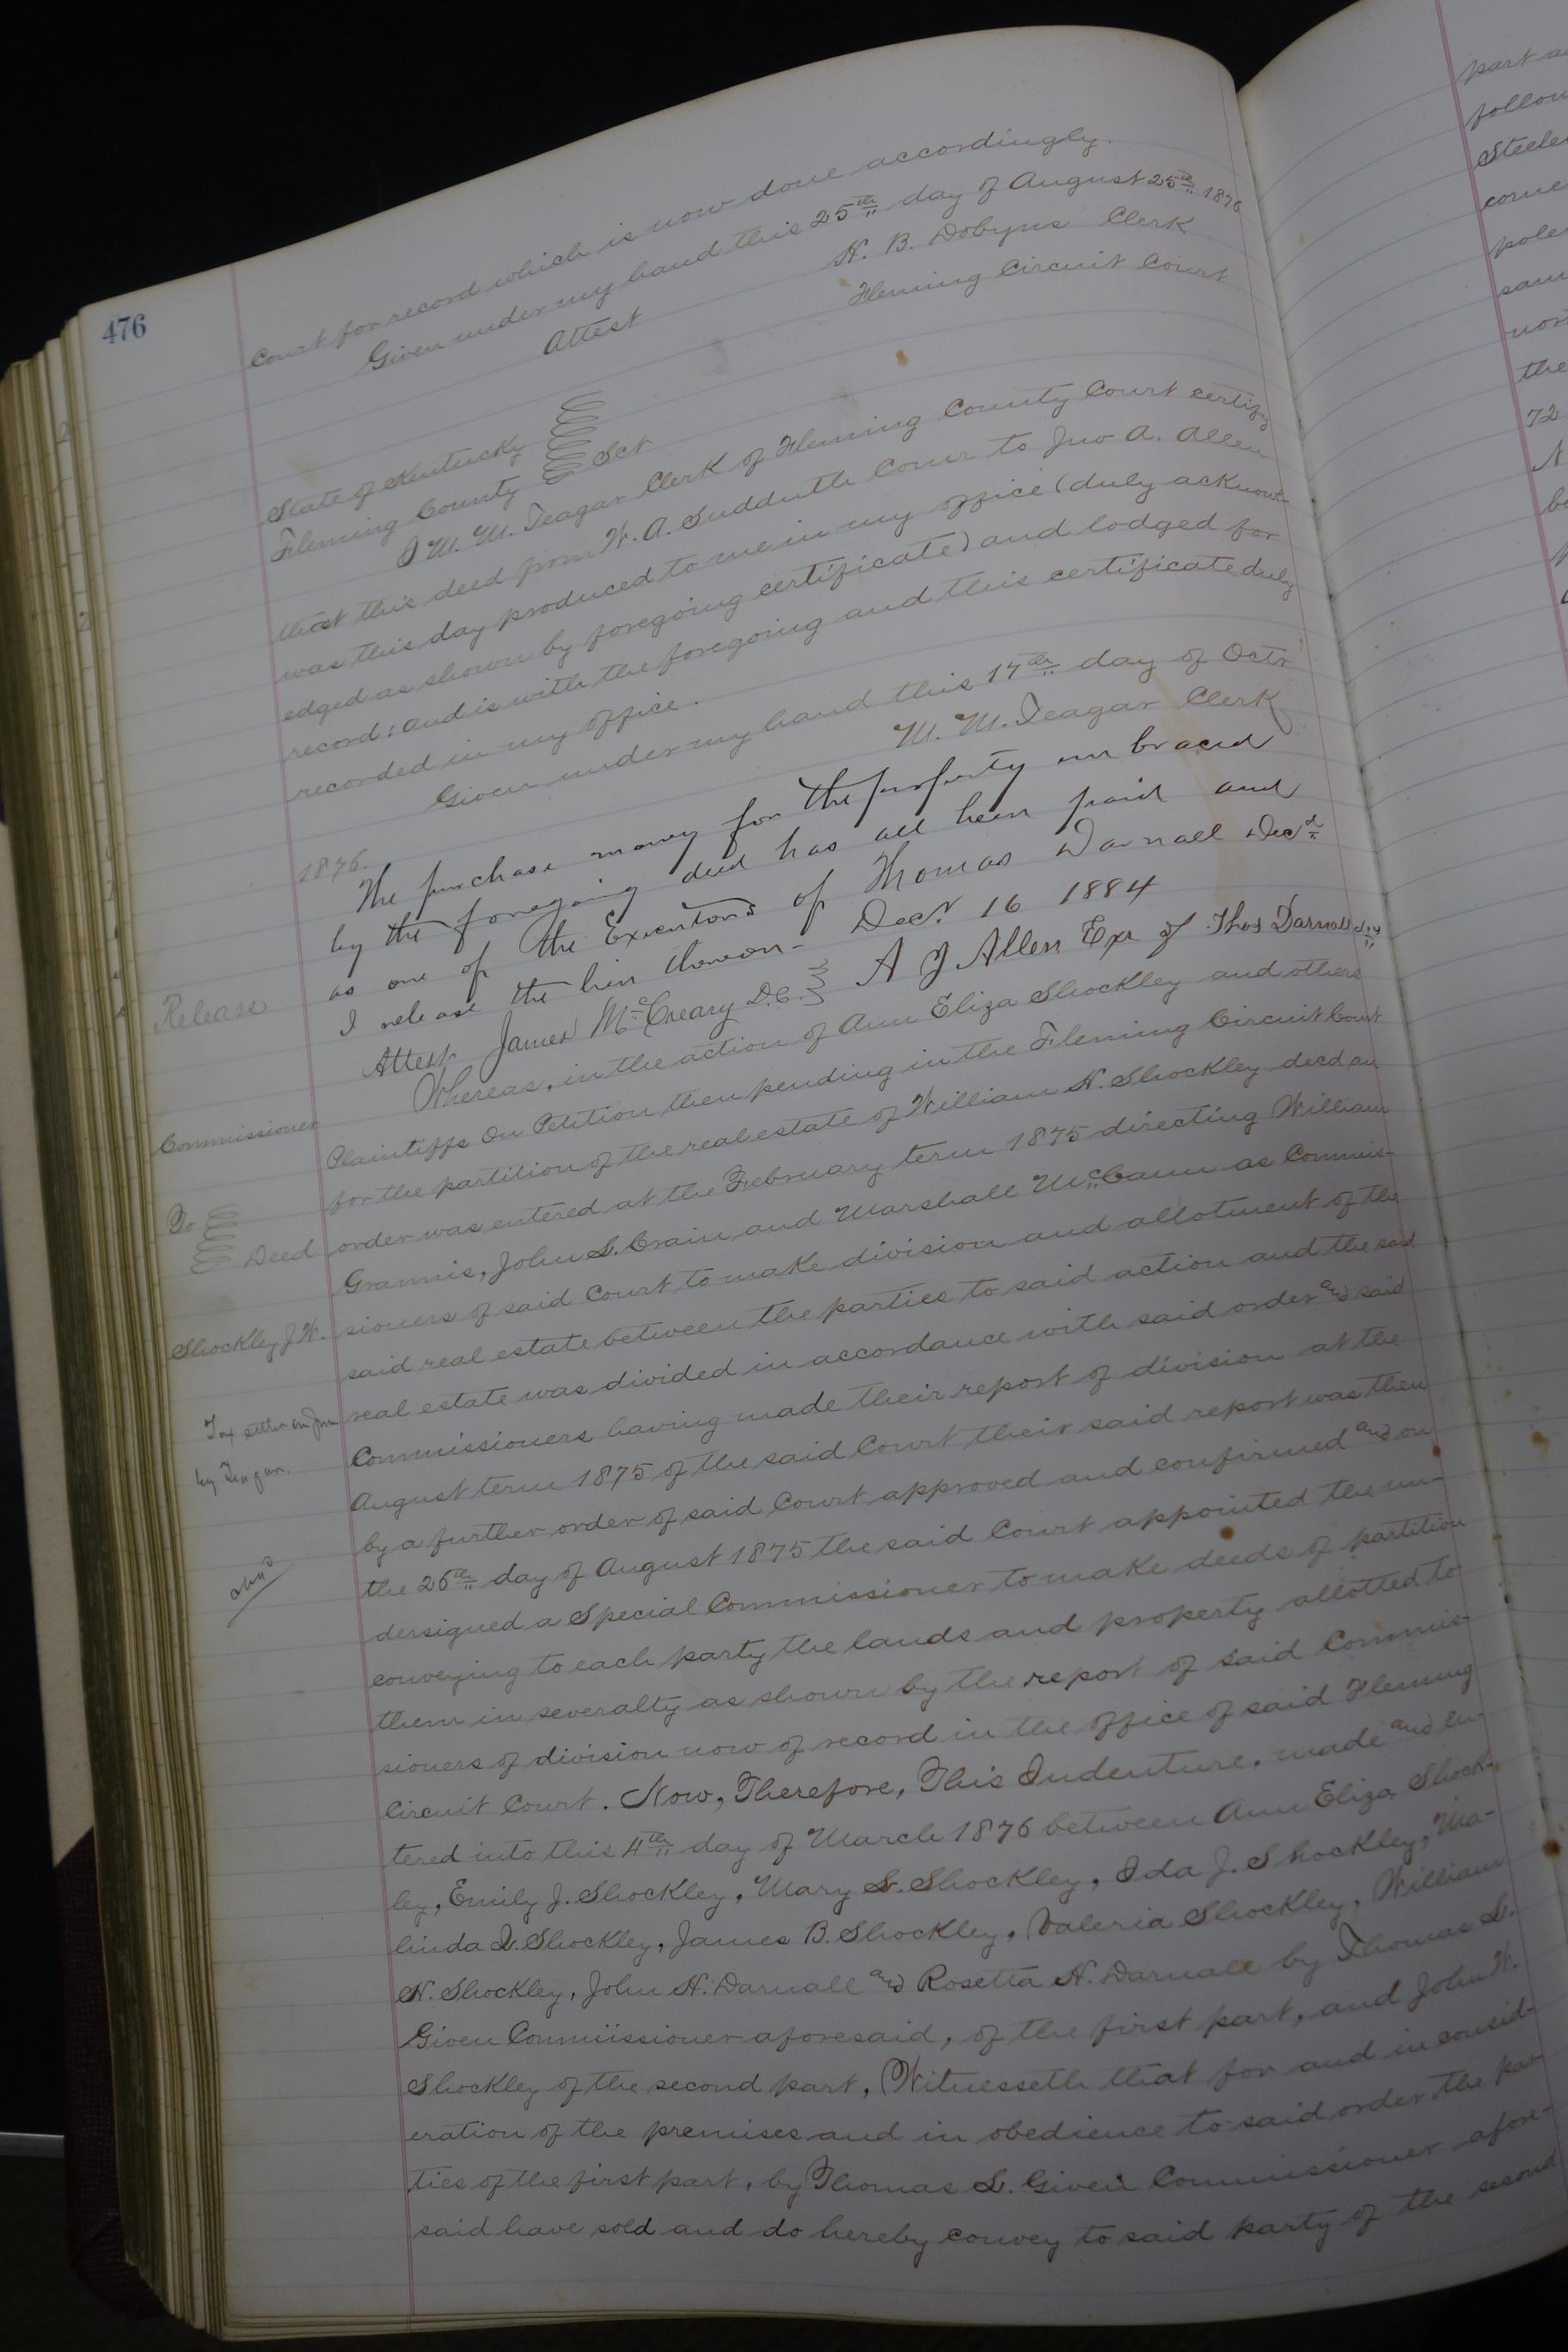 476
Court for record which is now done accordingly.
Given under my hand this 25th day of August 25th 1876
Attest H. B. Dobyns Clerk
Fleming Circuit Court
State of Kentucky
Fleming County Sct
I M. M. Teagar Clerk of Fleming County Court certify
that this deed from W. A. Sudduth Comr to Jno A. Allen
was this day produced to me in my office (duly acknowl-
edged as shown by foregoing certificate) and lodged for
record; and is with the foregoing and this certificate duly
recorded in my office.
Given under my hand this 17th day of Octr
1876. M. M. Teagar Clerk
Release
The purchase money for the property embraced
by the foregoing deed has all been paid and
as one of the Executors of Thomas Darnall Decd
I release the lien thereon - Decr 16 1884
Attest James McCreary D.C. A J Allen Exr of Thos Darnall
Commissioner
To Deed
Shockley J. W.
by Teagar.
Whereas, in the action of Ann Eliza Shockley and others
Plaintiffs On Petition then pending in the Fleming Circuit Court
for the partition of the real estate of William H. Shockley decd an
order was entered at the February term 1875 directing William
Grannis, John S. Crain and Marshall McCann as Commis-
sioners of said Court to make division and allotment of the
said real estate between the parties to said action and the said
real estate was divided in accordance with said order and said
Commissioners having made their report of division at the
August term 1875 of the said Court their said report was then
by a further order of said Court approved and confirmed and on
the 26th day of August 1875 the said Court appointed the un-
dersigned a Special Commissioner to make deeds of partition
conveying to each party the lands and property allotted to
them in severalty as shown by the report of said Commis-
sioners of division now of record in the office of said Fleming
Circuit Court. Now, Therefore, This Indenture, made and en-
tered into this 4th day of March 1876 between Ann Eliza Shock-
ley, Emily J. Shockley, Mary S. Shockley, Ida J. Shockley, Ma-
linda I. Shockley, James B. Shockley, Valeria Shockley, William
H. Shockley, John H. Darnall and Rosetta H. Darnall by Thomas S.
Given Commiissioner aforesaid, of the first part, and John W.
Shockley of the second part, Witnesseth that for and in consid-
eration of the premises and in obedience to said order the par-
ties of the first part, by Thomas S. Given Commissioner afore-
said have sold and do hereby convey to said party of the second
part
follow
Steele
corne
pole
sam
nor
the
72
N